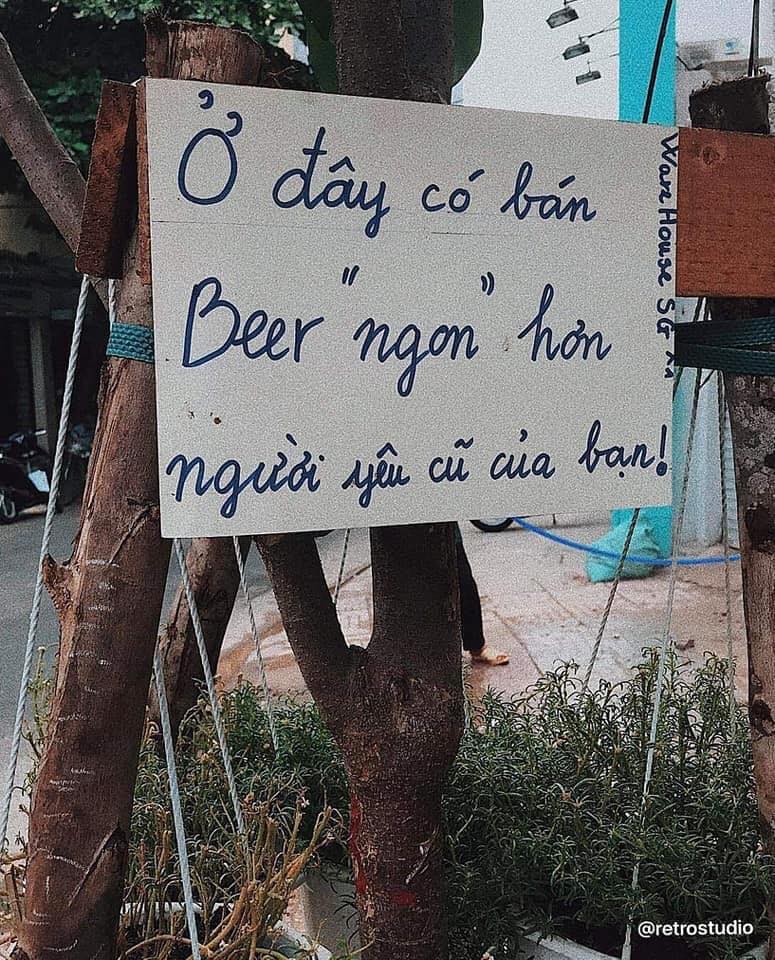 Ở đây có bán
Beer "ngon" hơn
người yêu cũ của bạn!
WareHouse SG
@retrostudio